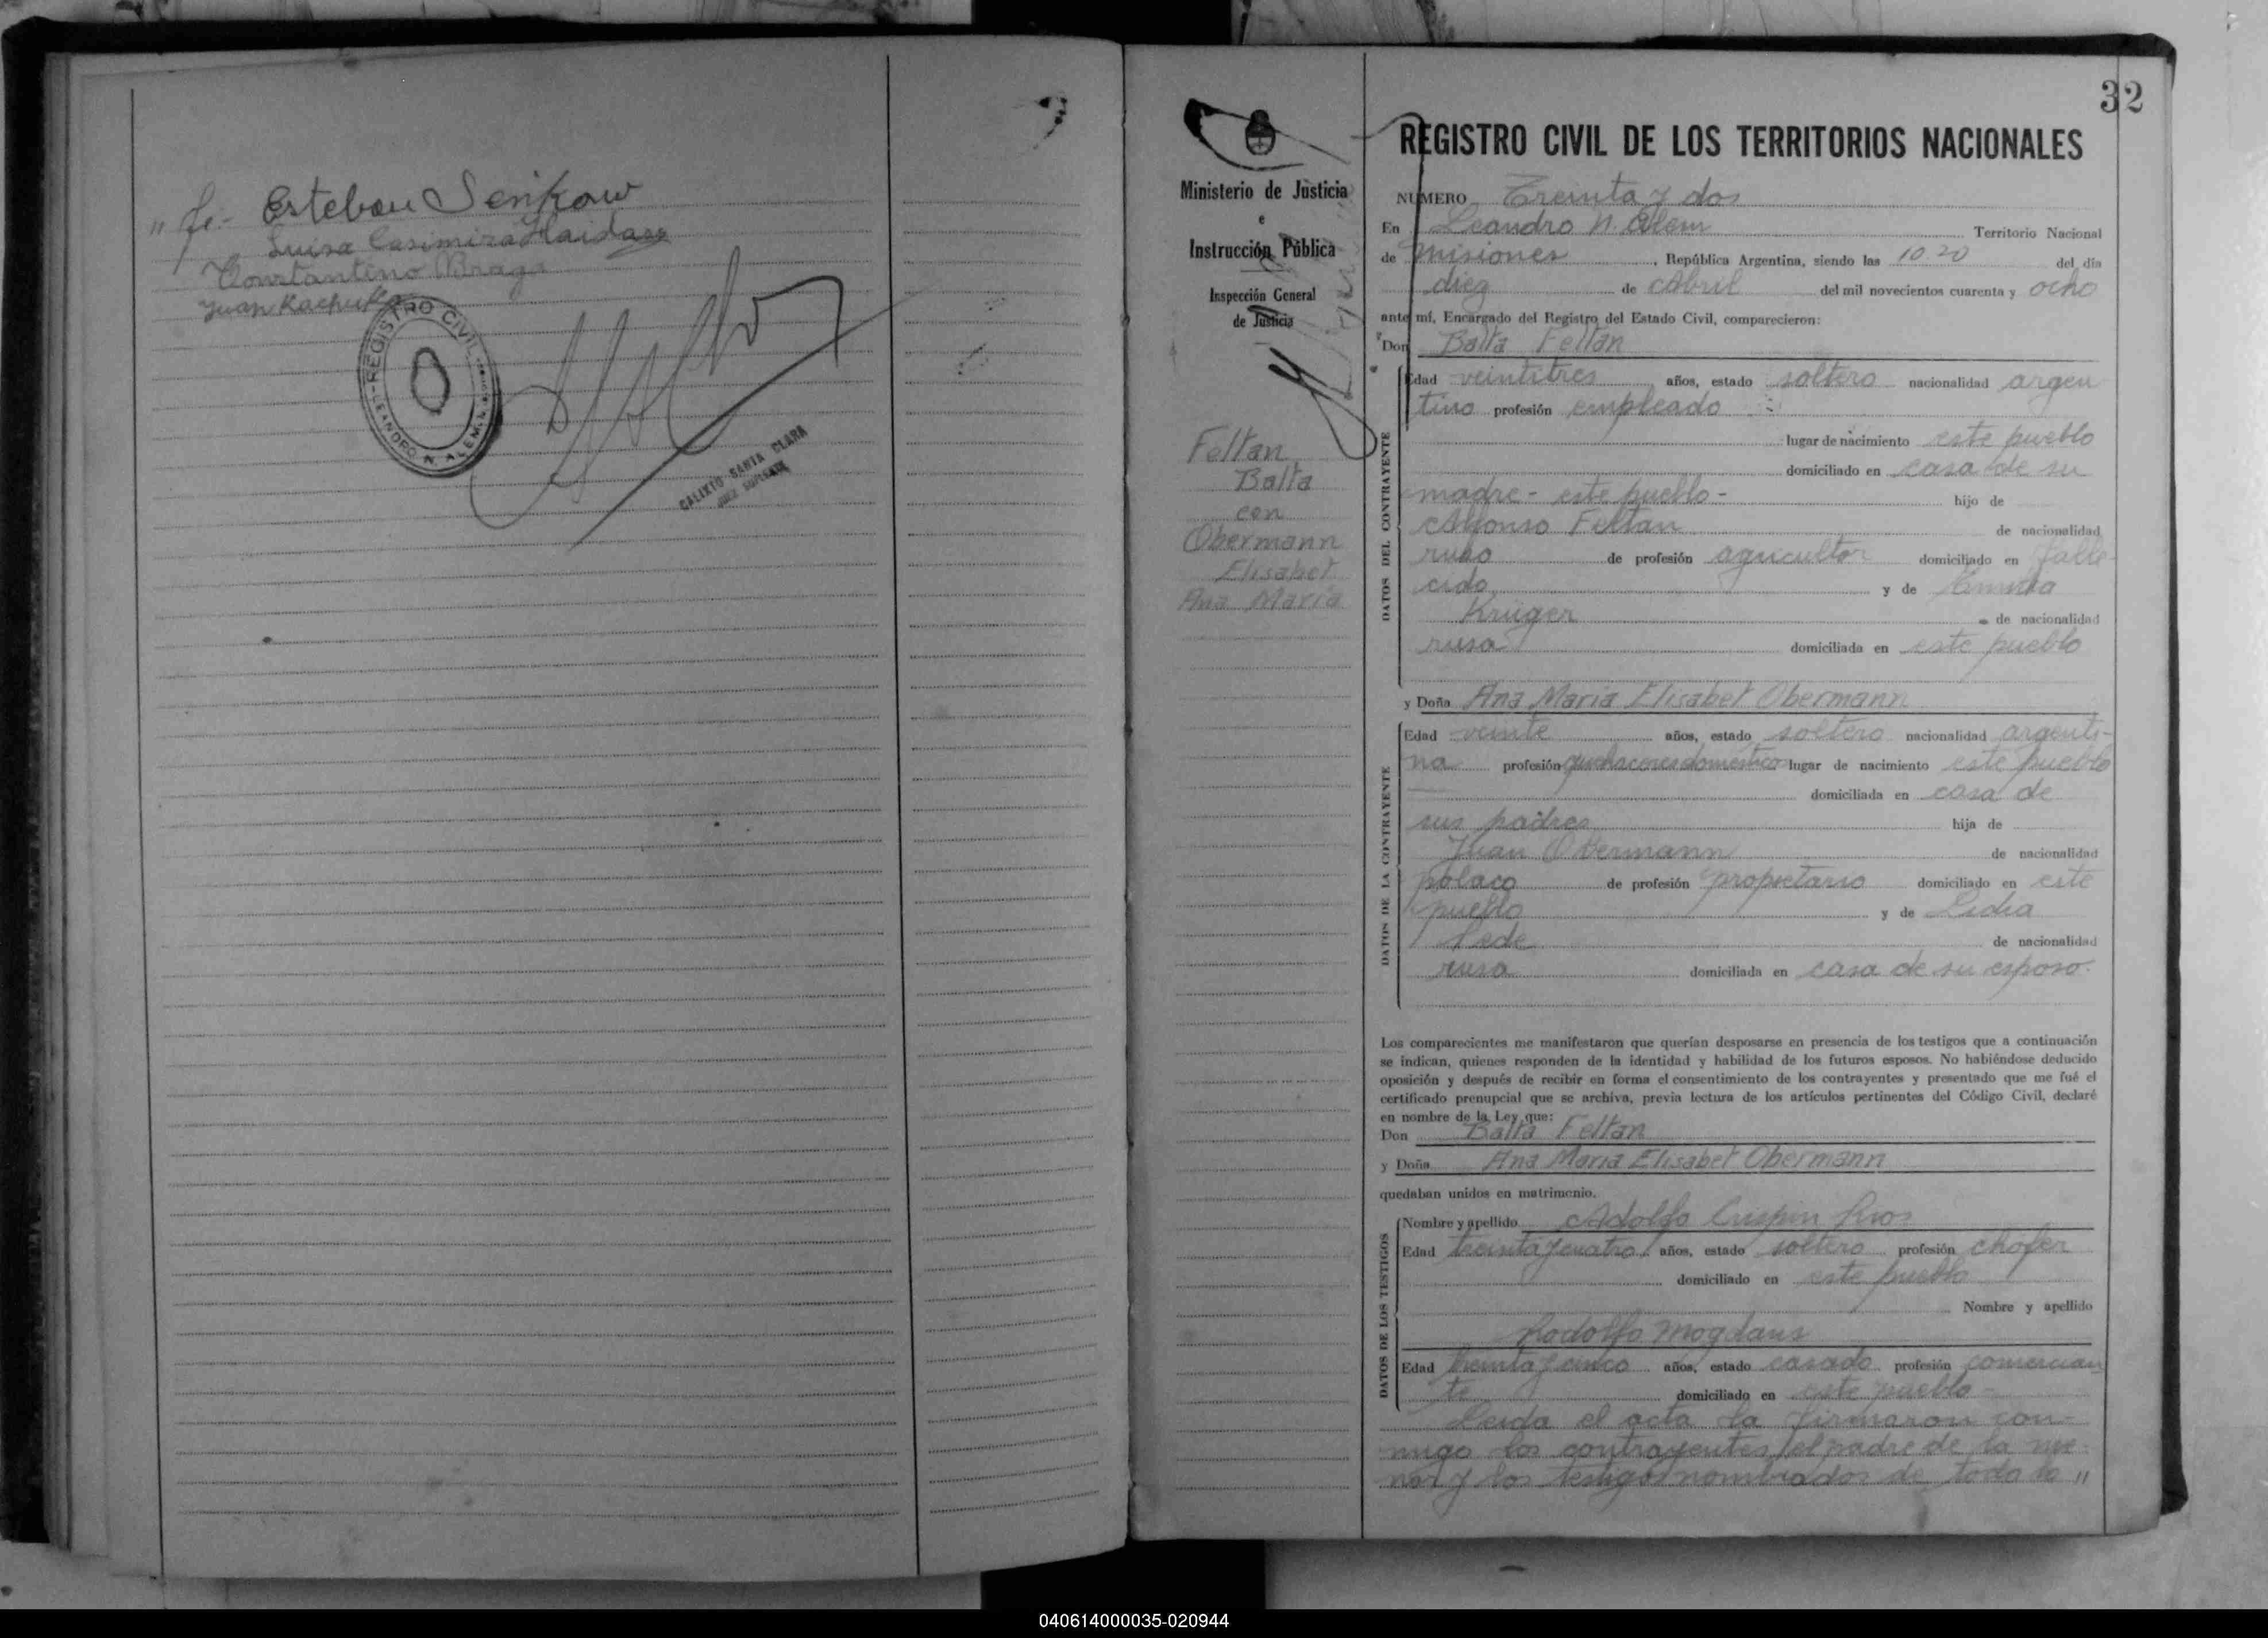 " fe.- Esteban Senkow
Luisa Casimira Haidasz
Constantino Braga
Juan Kachuk
REGISTRO CIVIL
LEANDRO N. ALEM
CALIXTO SANTA CLARA
JUEZ SUPLENTE
32
Ministerio de Justicia
e
Instrucción Pública
Inspección General
de Justicia
Feltan
Balta
con
Obermann
Elisabet
Ana Maria
REGISTRO CIVIL DE LOS TERRITORIOS NACIONALES
NUMERO Treinta y dos
En Leandro N. Alem Territorio Nacional
de Misiones, República Argentina, siendo las 10.20 del día
diez de Abril del mil novecientos cuarenta y ocho
ante mí, Encargado del Registro del Estado Civil, comparecieron:
Don Balta Feltan
DATOS DEL CONTRAYENTE
Edad veintitres años, estado soltero nacionalidad argen
tino profesión empleado
lugar de nacimiento este pueblo
domiciliado en casa de su
madre - este pueblo - hijo de
Alfonso Feltan de nacionalidad
ruso de profesión agricultor domiciliado en falle
cido y de Emma
Krüger de nacionalidad
rusa domiciliada en este pueblo
y Doña Ana Maria Elisabet Obermann
DATOS DE LA CONTRAYENTE
Edad veinte años, estado soltera nacionalidad argenti-
na profesión quehaceres domésticos lugar de nacimiento este pueblo
domiciliada en casa de
sus padres hija de
Juan Obermann de nacionalidad
polaco de profesión propietario domiciliado en este
pueblo y de Lidia
de nacionalidad
rusa domiciliada en casa de su esposo.
Los comparecientes me manifestaron que querían desposarse en presencia de los testigos que a continuación
se indican, quienes responden de la identidad y habilidad de los futuros esposos. No habiéndose deducido
oposición y después de recibir en forma el consentimiento de los contrayentes y presentado que me fué el
certificado prenupcial que se archiva, previa lectura de los artículos pertinentes del Código Civil, declaré
en nombre de la Ley que:
Don Balta Feltan
y Doña Ana Maria Elisabet Obermann
quedaban unidos en matrimonio.
DATOS DE LOS TESTIGOS
Nombre y apellido Adolfo Crispin Rios
Edad treinta y cuatro años, estado soltero profesión chofer
domiciliado en este pueblo
Nombre y apellido
Rodolfo Mogdans
Edad treinta y cinco años, estado casado profesión comercian
te domiciliado en este pueblo -
Leida el acta la firmaron con-
migo los contrayentes, el padre de la me-
nor y los testigos nombrados de todo lo "
040614000035-020944